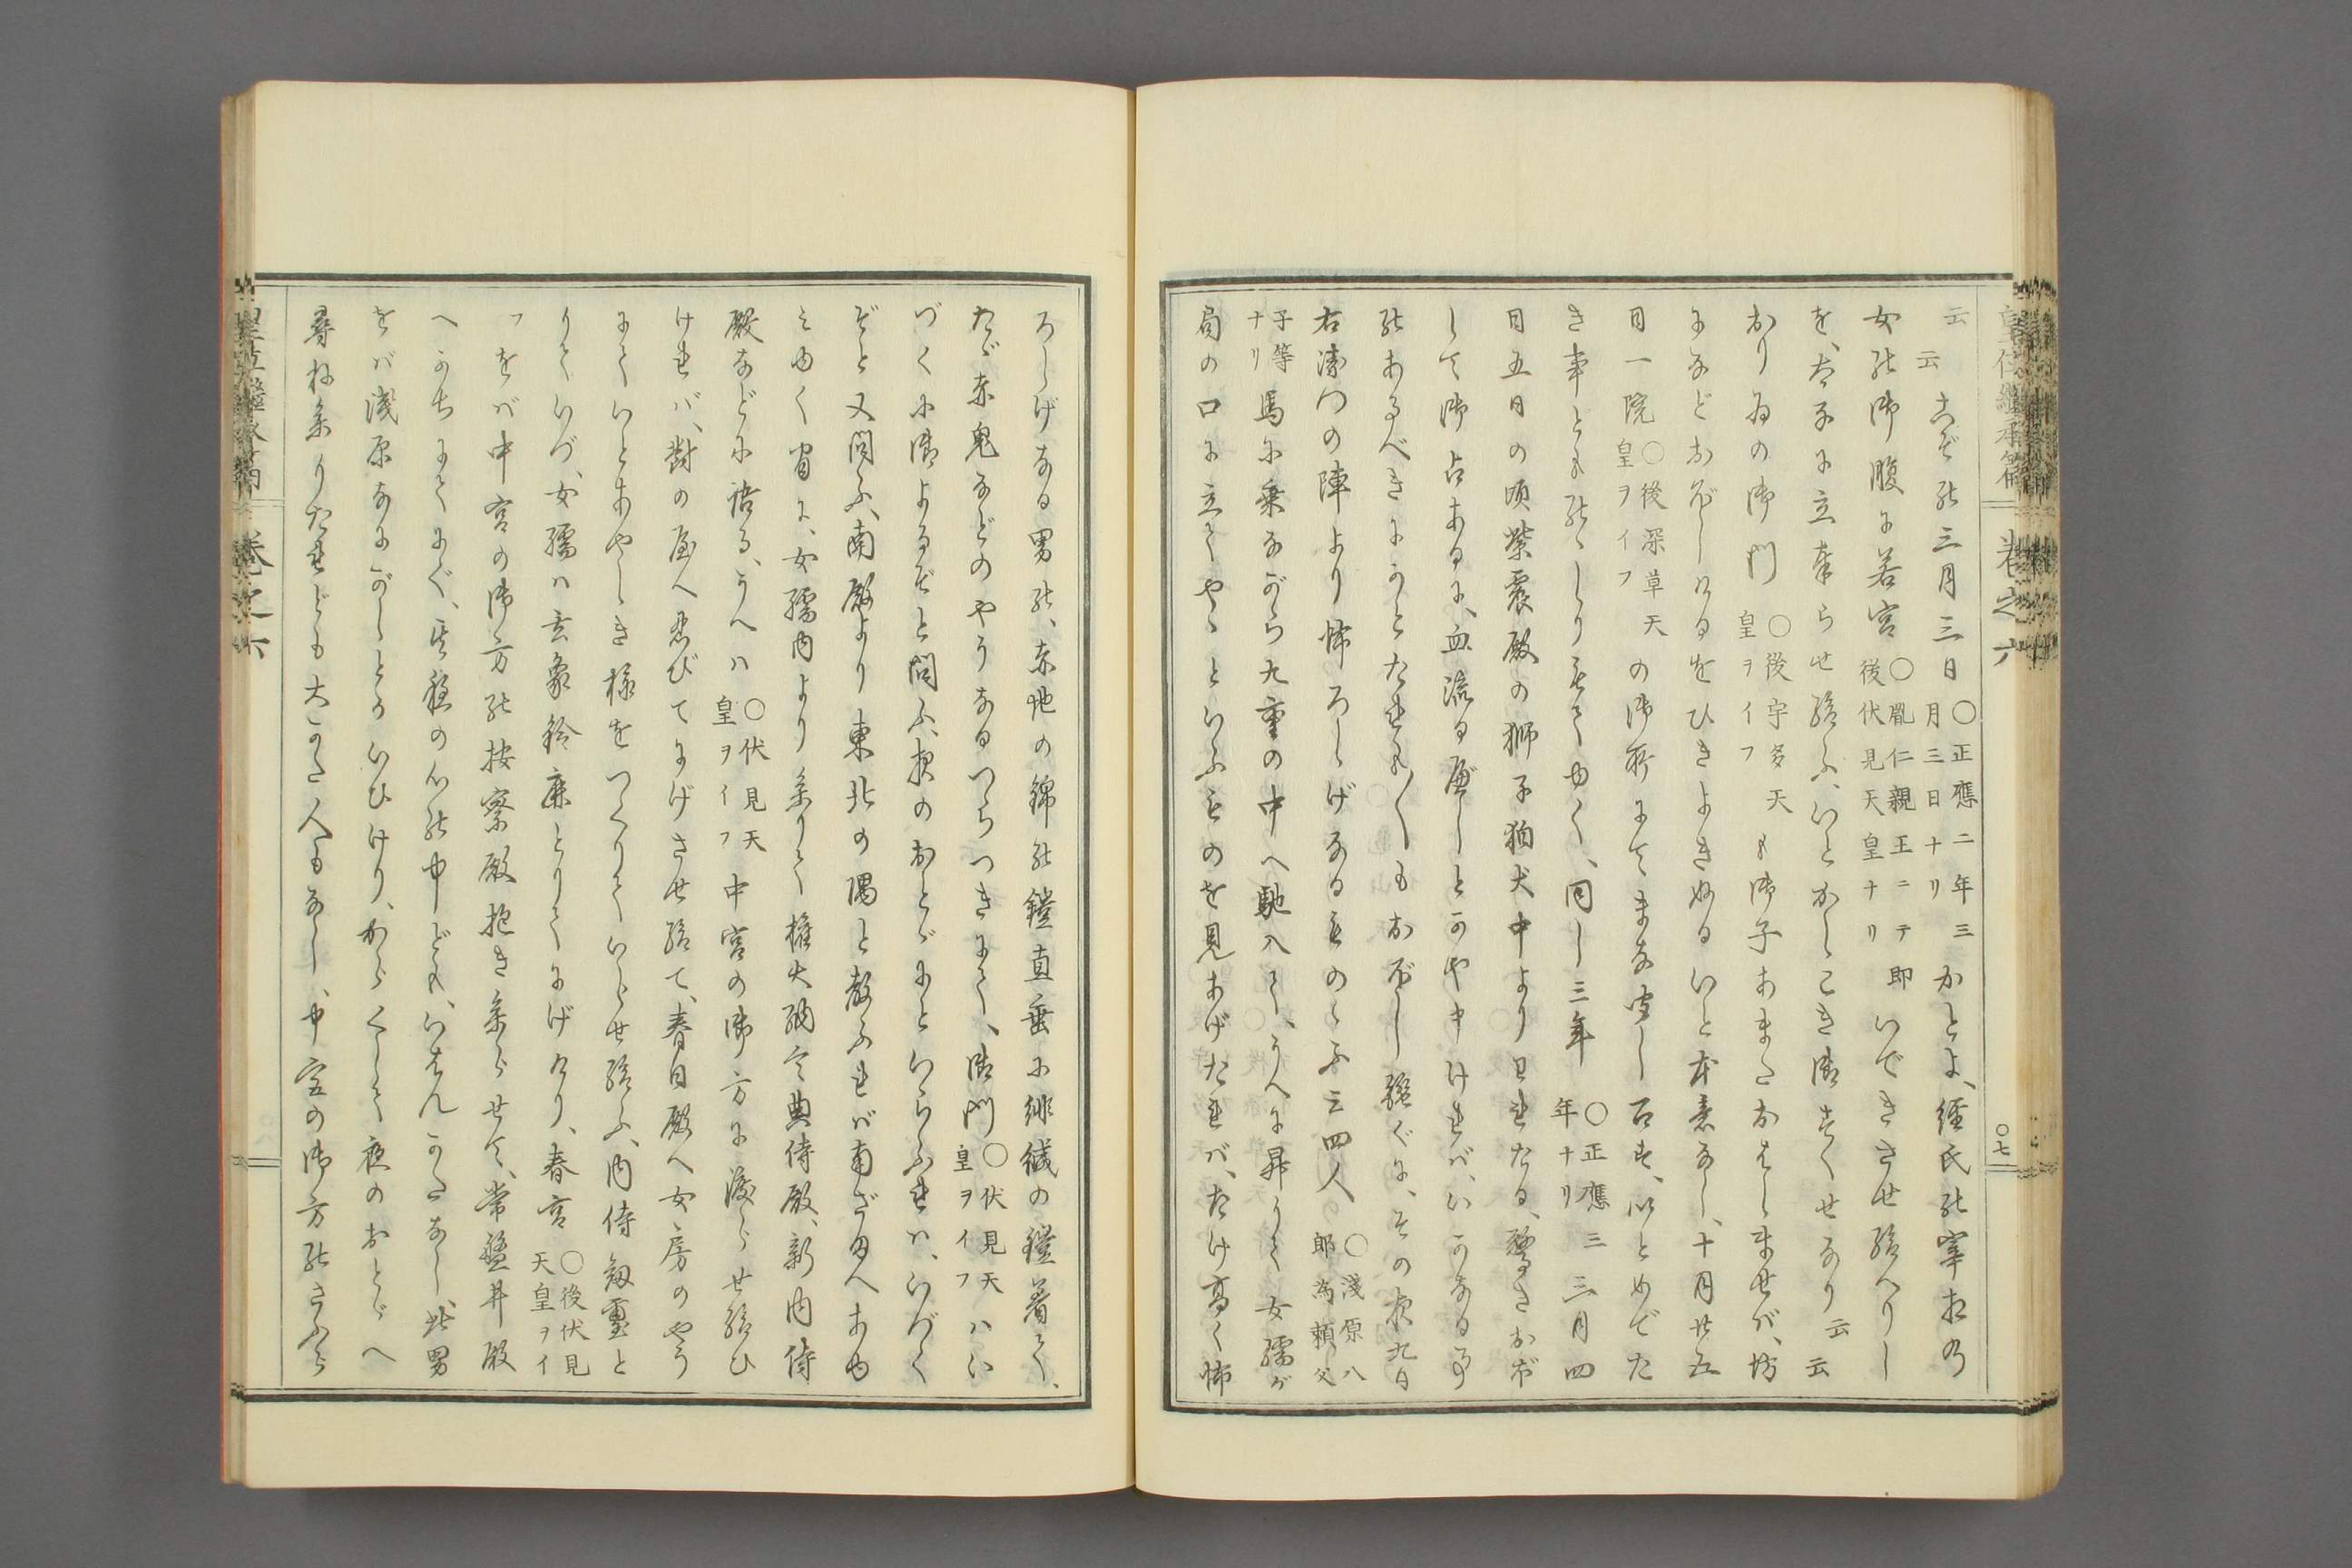 皇位繼承篇　卷之六　〇七
云云こぞの三月三日〇正應二年三月三日ナリかとよ、經氏の宰相の
女の御腹に若宮〇胤仁親王ニテ即後伏見天皇ナリいできさせ給へりし
を、太子に立奉らせ給ふ、いとかしこき御すくせなり云云
おりゐの御門〇後宇多天皇ヲイフも御子あまたおはしませば、坊
になどおぼしけるをひきよきぬるいと本意なし、十月廿五
日一院〇後深草天皇ヲイフの御所にてまな聞しめす、いとめでた
き事どものゝしりもてゆく、同し三年〇正應三年ナリ三月四
日五日の頃紫宸殿の獅子狛犬中よりわれたる、驚きおぼ
して御占あるに、血流るべしとかや申ければ、いかなる事
のあるべきにかとたれも〳〵もおぼし騷ぐに、その夜九日
右衞門の陣より怖ろしげなるものゝふ三四人〇淺原八郎為頼父
子等ナリ馬に乘ながら九重の中へ馳入て、うへに昇りて女孺が
局の口に立てやゝといふものを見あげたれば、たけ高く怖
ろしげなる男の、赤地の錦の鎧直垂に緋縅の鎧着て、
たゞ赤鬼などのやうなるつらつきにて、御門〇伏見天皇ヲイフハい
づくに御よるぞと問ふ、夜のおとゞにといらふれハ、いづく
ぞと又問ふ、南殿より東北の隅と敎ふれバ南ざまへあゆ
みゆく間に、女孺内より參りて權大納言典侍殿、新内侍
殿などに語る、うへハ〇伏見天皇ヲイフ中宮の御方に渡らせ給ひ
ければ、對の屋へ忍びてにげさせ給て、春日殿へ女房のやう
にていとあやしき樣をつくりていらせ給ふ、内侍劔璽と
りていづ、女孺ハ玄象鈴鹿とりてにげけり、春宮〇後伏見天皇ヲイ
フをバ中宮の御方の按察殿抱き參らせて、常盤井殿
へかちにてにぐ、其程の心の中ども、いはんかたなし、此男
をバ淺原なにがしとかいひけり、からくして夜のおとゞへ
尋ね參りたれども大かた人もなし、中宮の御方のさふら
皇位繼承篇　卷之六